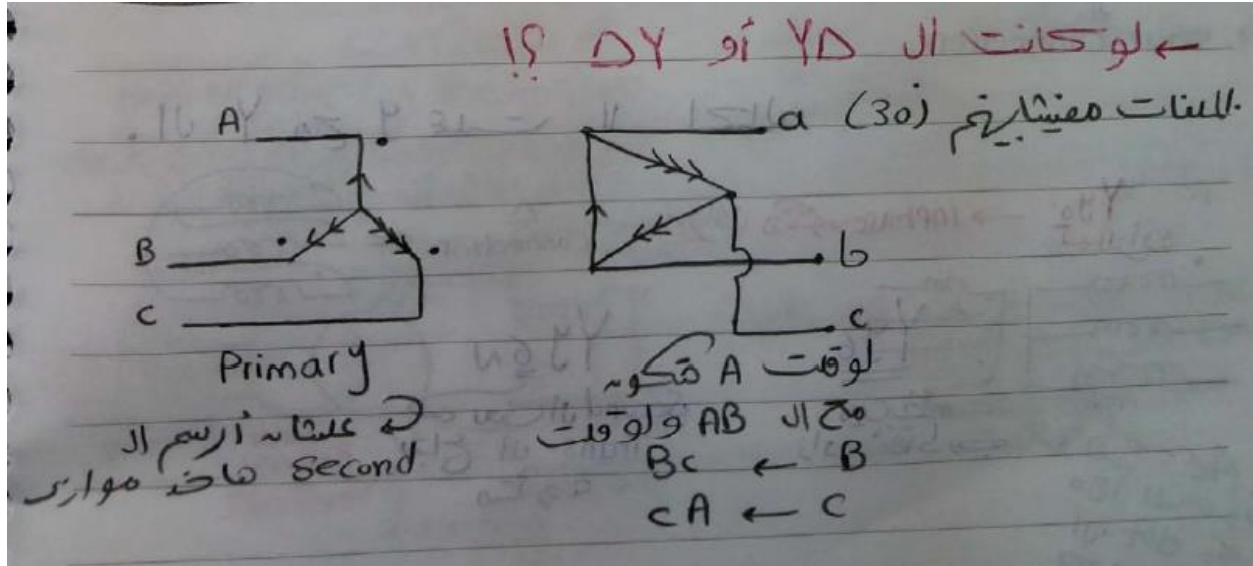 ← لو كانت ال YD أو DY ؟!
اللفات مفيش بينهم (30)
A
B
C
Primary
علشان أرسم ال
second هاخد موازى
a
b
c
لوقت A هتكون
مع ال AB ولوقت
B ← Bc
C ← cA